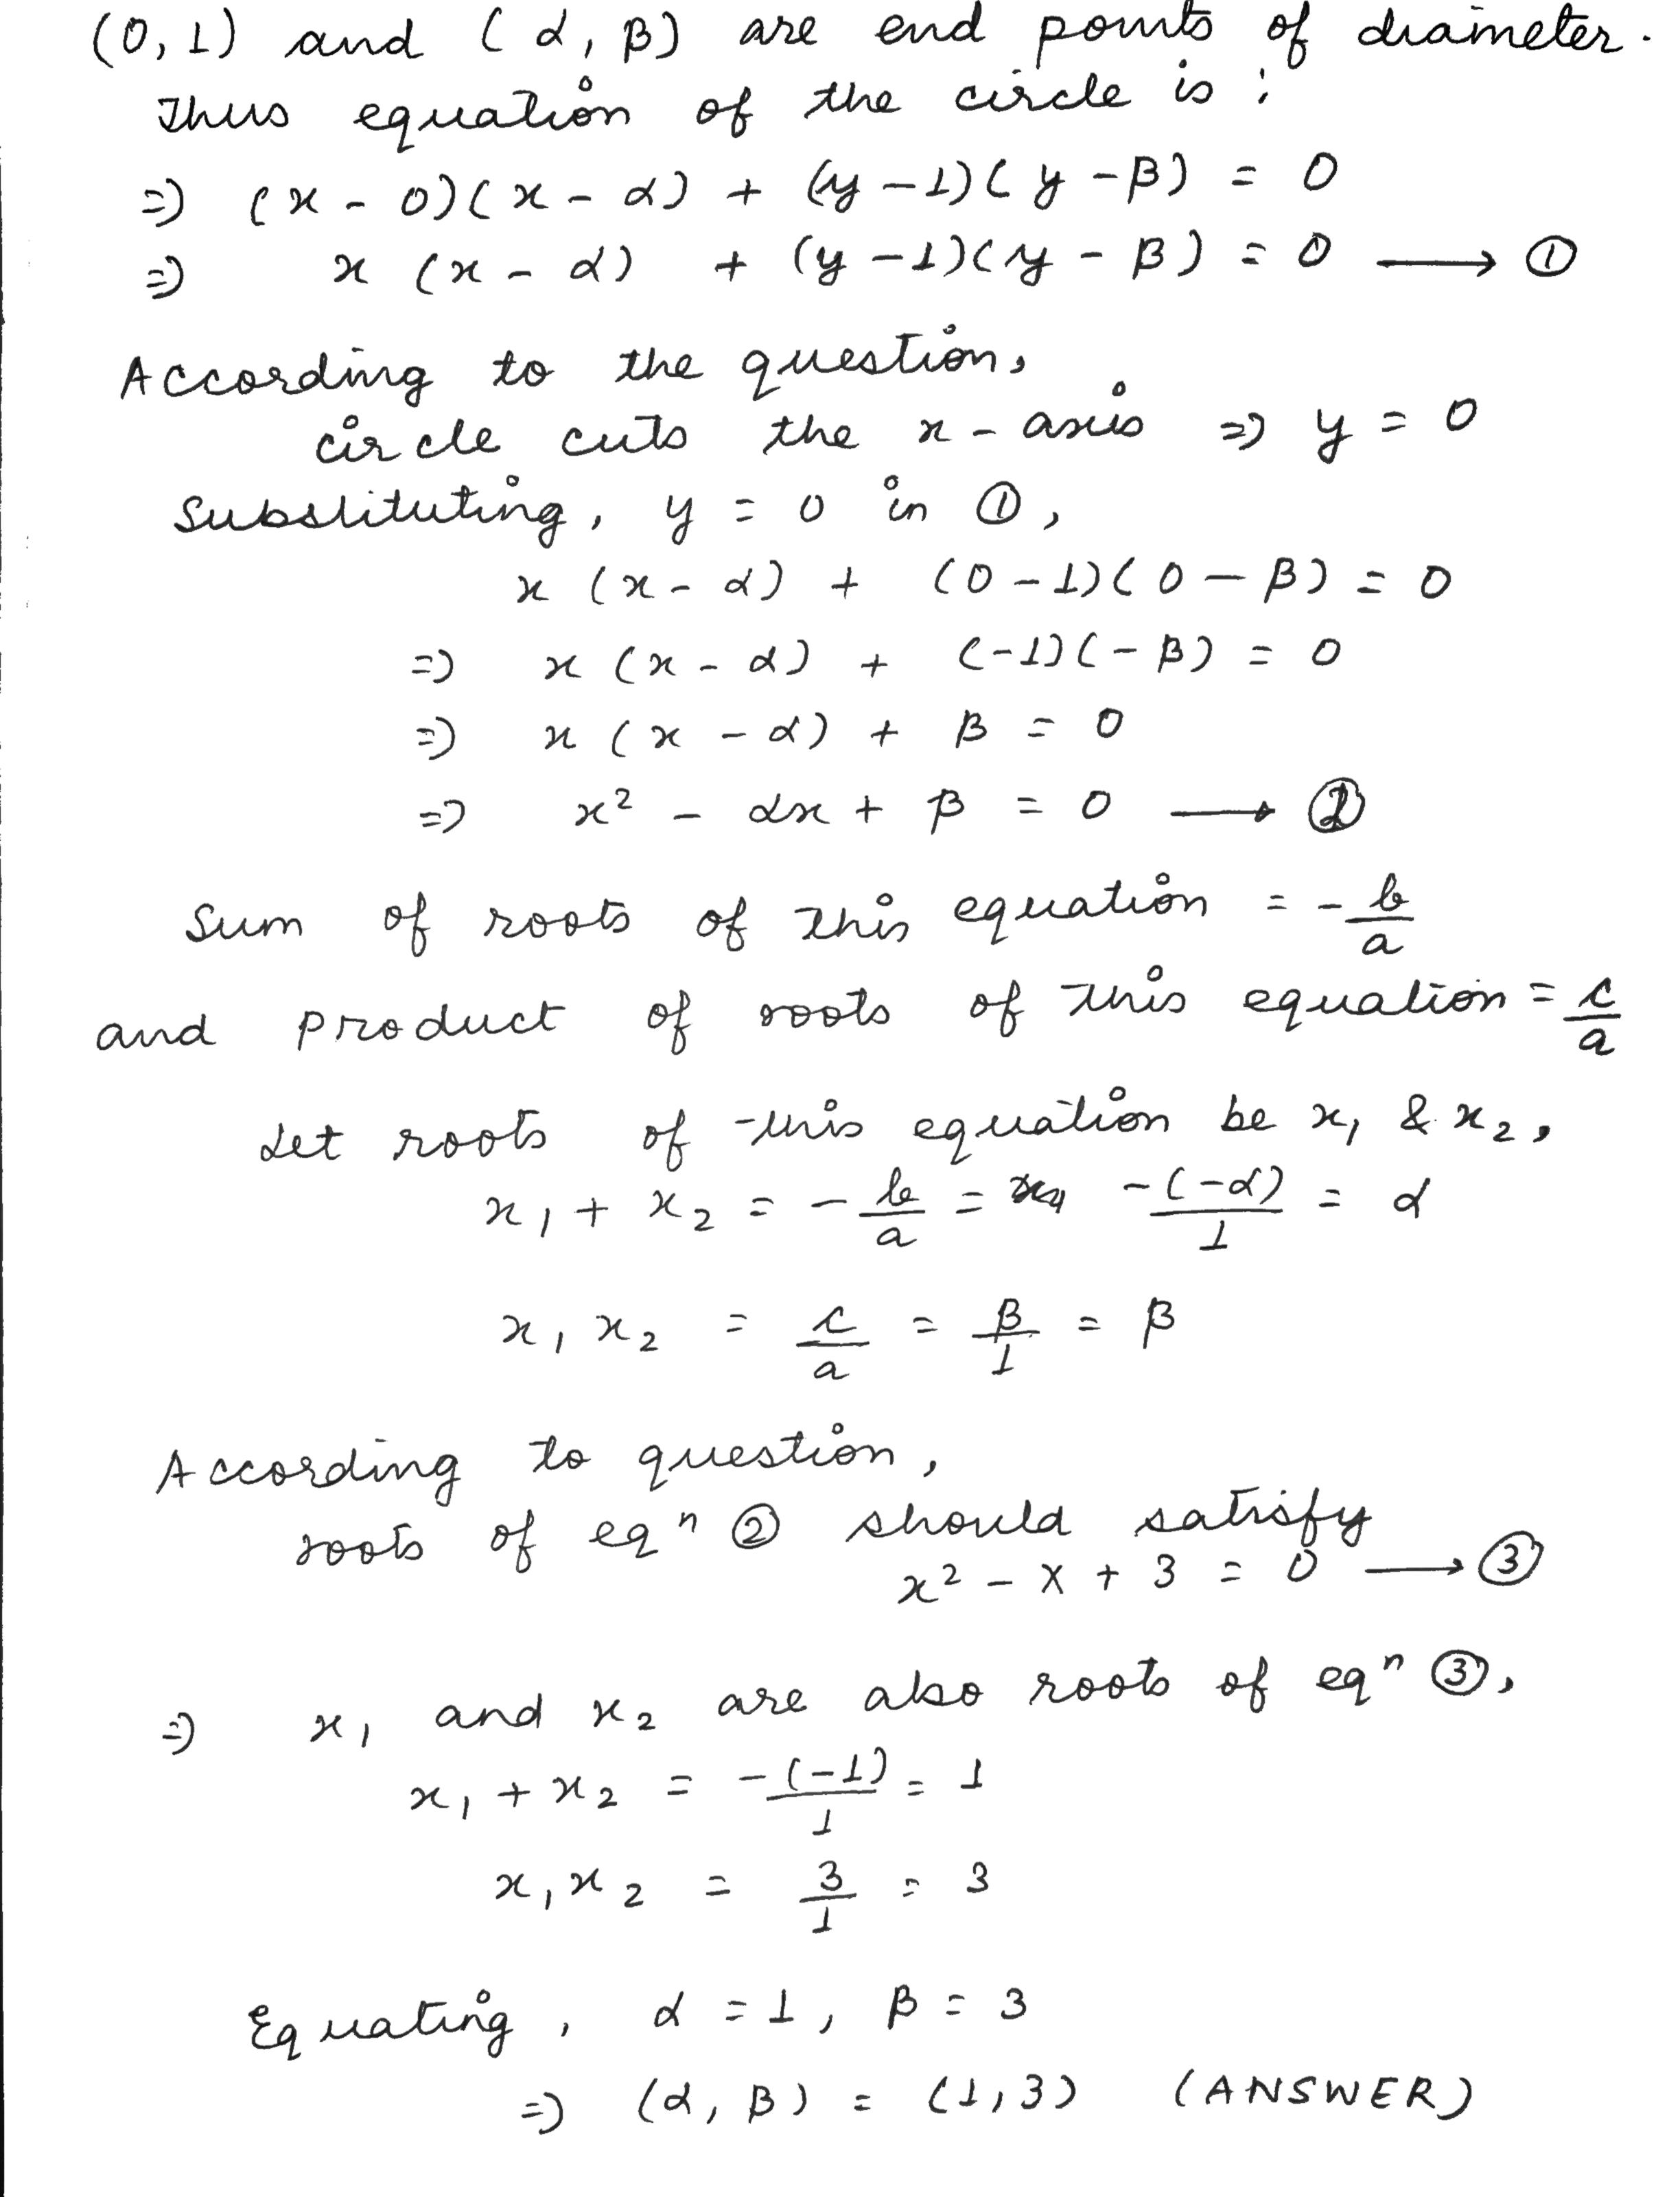 (0,1) and (α, β) are end points of diameter.
Thus equation of the circle is :
⇒ (x - 0)(x - α) + (y - 1)(y - β) = 0
⇒ x (x - α) + (y - 1)(y - β) = 0 ⟶ ①
According to the question,
circle cuts the x - axis ⇒ y = 0
Substituting, y = 0 in ①,
x (x - α) + (0 - 1)(0 - β) = 0
⇒ x (x - α) + (-1)(-β) = 0
⇒ x (x - α) + β = 0
⇒ x² - αx + β = 0 ⟶ ②
Sum of roots of this equation = -b/a
and product of roots of this equation = c/a
Let roots of this equation be x₁ & x₂,
x₁ + x₂ = -b/a = -(-α)/1 = α
x₁ x₂ = c/a = β/1 = β
According to question,
roots of eqⁿ ② should satisfy
x² - x + 3 = 0 ⟶ ③
⇒ x₁ and x₂ are also roots of eqⁿ ③,
x₁ + x₂ = -(-1)/1 = 1
x₁ x₂ = 3/1 = 3
Equating, α = 1, β = 3
⇒ (α, β) = (1,3) (ANSWER)